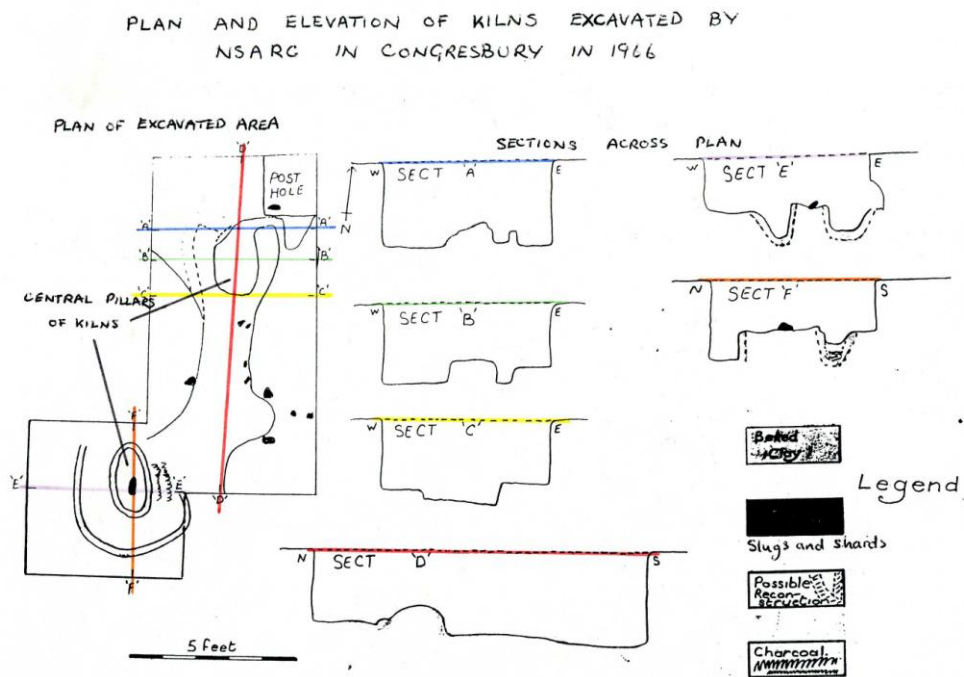 PLAN AND ELEVATION OF KILNS EXCAVATED BY
NSARC IN CONGRESBURY IN 1966
PLAN OF EXCAVATED AREA
'D'
POST
HOLE
'A' 'A'
'B' 'B'
'C' 'C'
CENTRAL PILLARS
OF KILNS
'F'
'E' 'E'
'D'
'F'
5 feet
N
SECTIONS ACROSS PLAN
W SECT 'A' E
W SECT 'B' E
W SECT 'C' E
N SECT 'D' S
W SECT 'E' E
N SECT 'F' S
Baked
Clay
Legend
Slugs and shards
Possible
Recon-
struction
Charcoal.